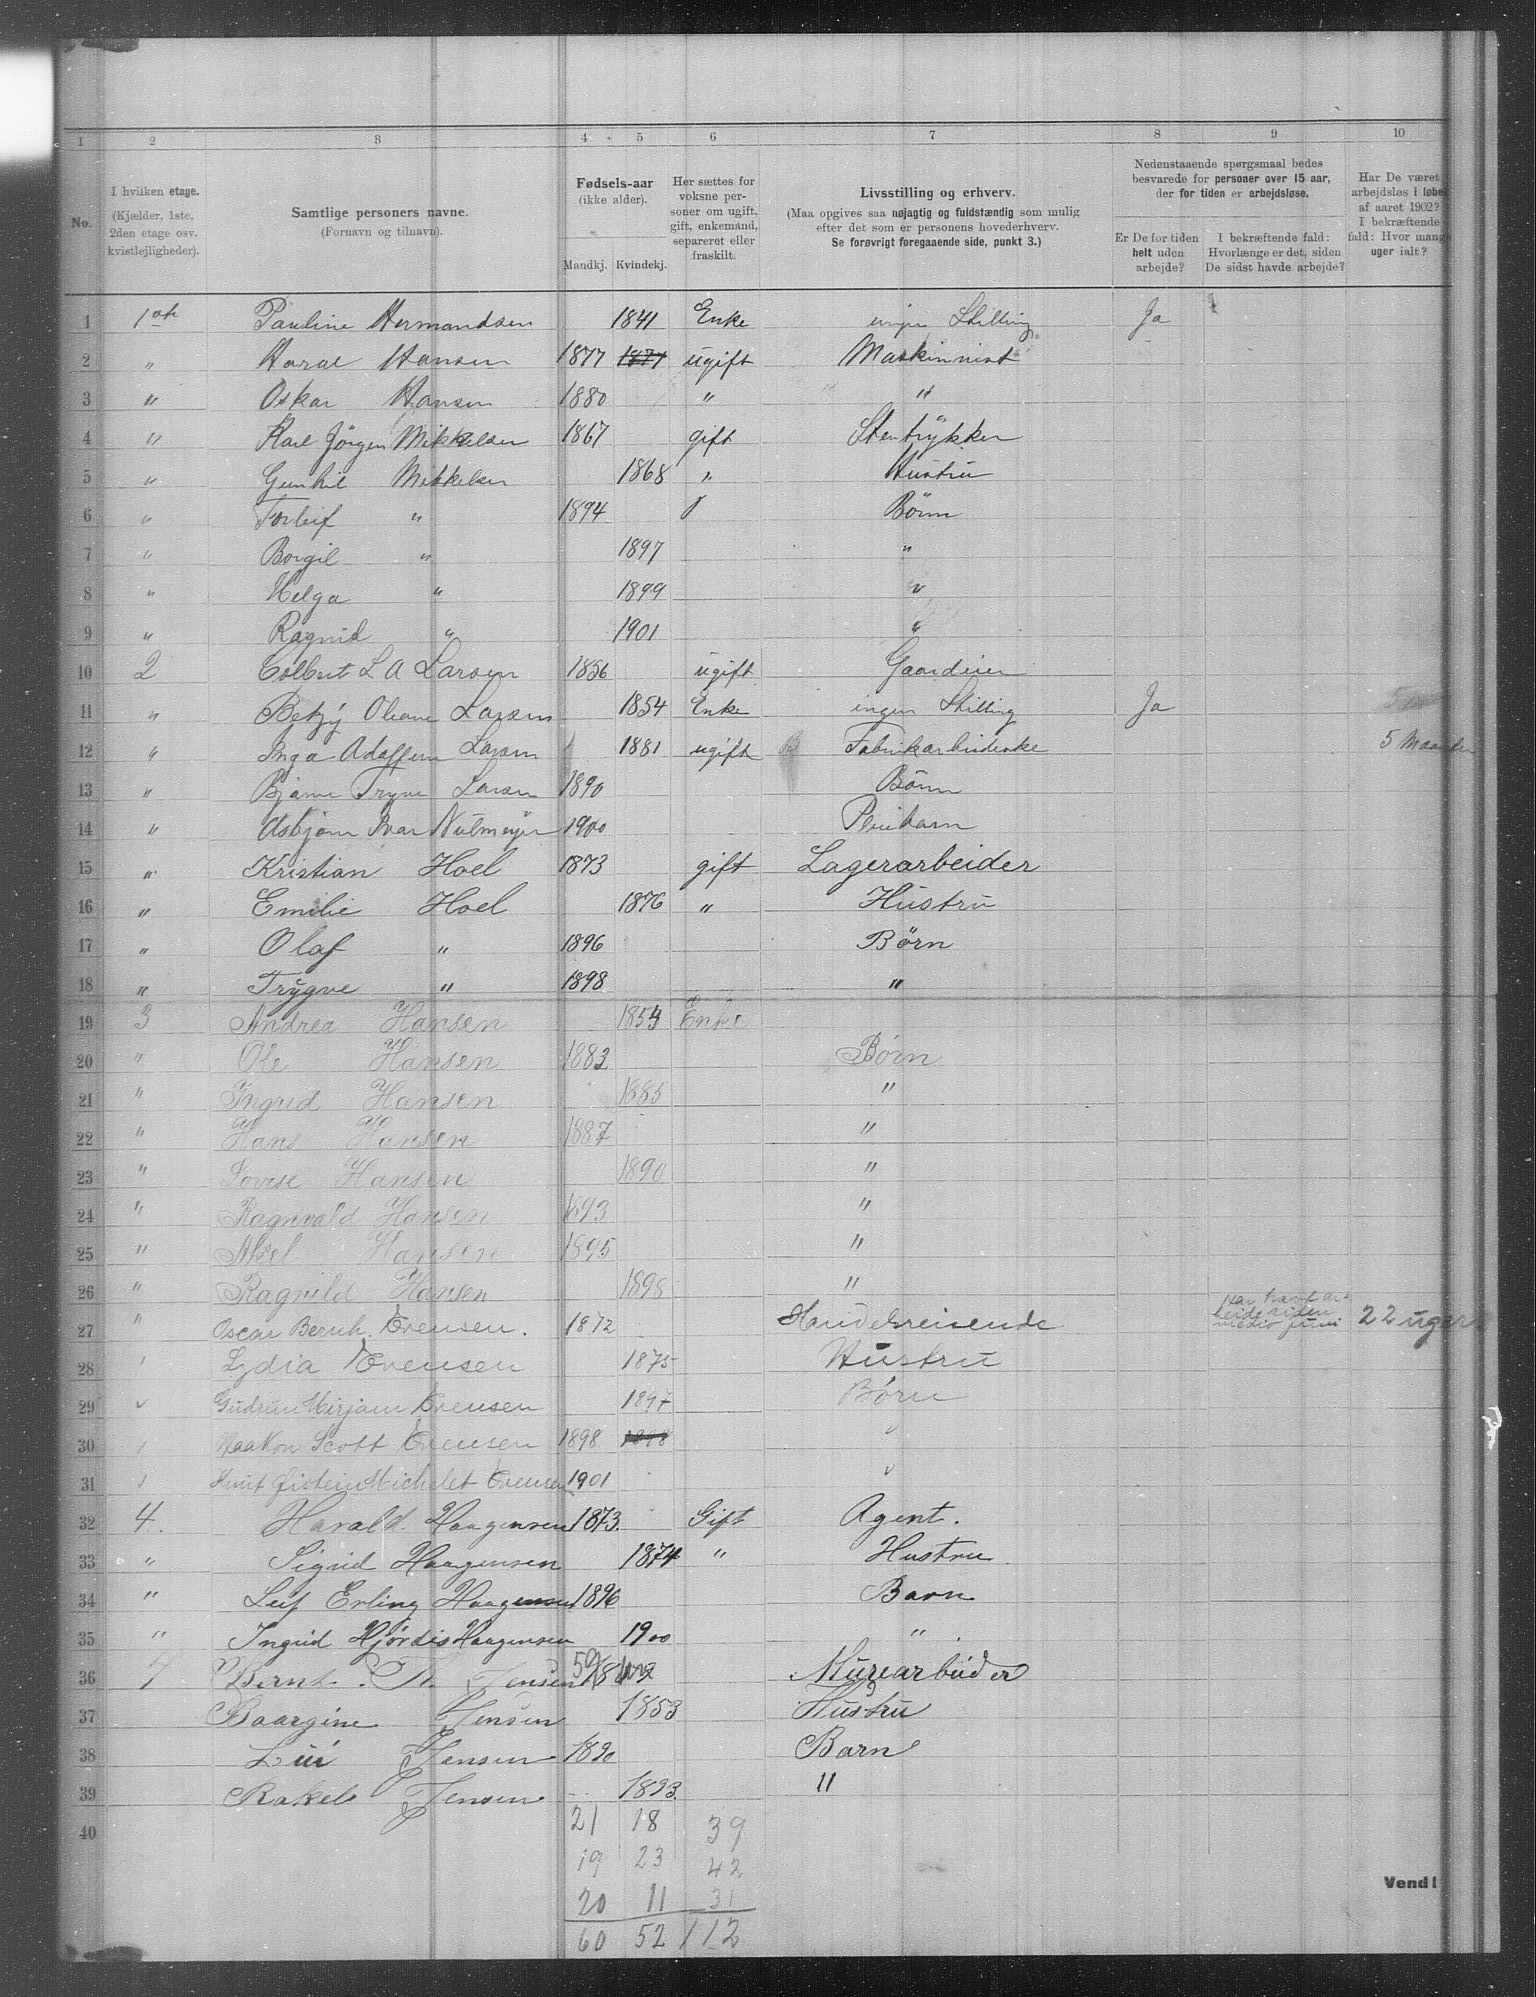 1 2 3 4 5 6 7 8 9 10
No.
I hvilken etage.
(Kjælder, 1ste,
2den etage osv.
kvistlejligheder).
Samtlige personers navne.
(Fornavn og tilnavn).
Fødsels-aar
(ikke alder).
Mandkj. Kvindekj.
Her sættes for
voksne per-
soner om ugift,
gift, enkemand,
separeret eller
fraskilt.
Livsstilling og erhverv.
(Maa opgives saa nøjagtig og fuldstændig som mulig
efter det som er personens hovederhverv.
Se forøvrigt foregaaende side, punkt 3.)
Nedenstaaende spørgsmaal bedes
besvarede for personer over 15 aar,
der for tiden er arbejdsløse.
Er De for tiden
helt uden
arbejde?
I bekræftende fald:
Hvorlænge er det, siden
De sidst havde arbejde?
Har De været
arbejdsløs i løbe
af aaret 1902?
I bekræftende
fald: Hvor mange
uger ialt?
1 1 Pauline Hermandsen 1841 Enke ingen Stilling Ja
2 " Haral Hansen 1877 1877 ugift Maskinnist
3 " Oskar Hansen 1880 " "
4 " Karl Jörgen Mikkelsen 1867 gift Stentrykker
5 " Gunhil Mikkelsen 1868 " Hustru
6 " Torleif " 1894 Börn
7 " Borgil " 1897 "
8 " Helga " 1899 "
9 " Ragnid " 1901 "
10 2 L A Larsen 1856 ugift
11 " Betzy Oleane Larsen 1854 Enke ingen Stilling Ja
12 " Inga Larsen 1881 ugift Fabrikarbiderske 5 Maaneder
13 " Bjarne Tryve Larsen 1890 Börn
14 " Asbjörn Ivar 1900 Pleiebarn
15 " Kristian Hoel 1873 gift Lagerarbeider
16 " Emilie Hoel 1876 " Hustru
17 " Olaf " 1896 Børn
18 " Trygve " 1898 "
19 3 Andrea Hansen 1854 Enke
20 " Ole Hansen 1883 Børn
21 " Ingrid Hansen 1885 "
22 " Hans Hansen 1887 "
23 " Lovise Hansen 1890 "
24 " Ragnvald Hansen 1893 "
25 " Aksel Hansen 1895 "
26 " Ragnild Hansen 1898 "
27 " Oscar Bernh. Evensen. 1872 Handelsreisende har havt ar-
beide siden
medio juni 22 uger
28 " Lydia Evensen 1875 Hustru
29 " Gudrun Mirjam Evensen 1897 Børn
30 " Haakon Scott Evensen 1898 1898 "
31 " Knut Øistein Michelet Evensen 1901 "
32 4. Harald Haagensen 1873. Gift Agent.
33 " Sigrid Haagensen 1874 " Hustru
34 " Leif Erling Haagensen 1896 Barn
35 " Ingrid Hjørdis Haagensen 1900 "
36 Bernt. Th. Jensen Murearbeider
37 Jensen 1853 Hustru
38 Jensen 1890 Barn
39 Rakel Jensen 1893. "
40 21 18 39
19 23 42
20 11 31
60 52 112
Vend!